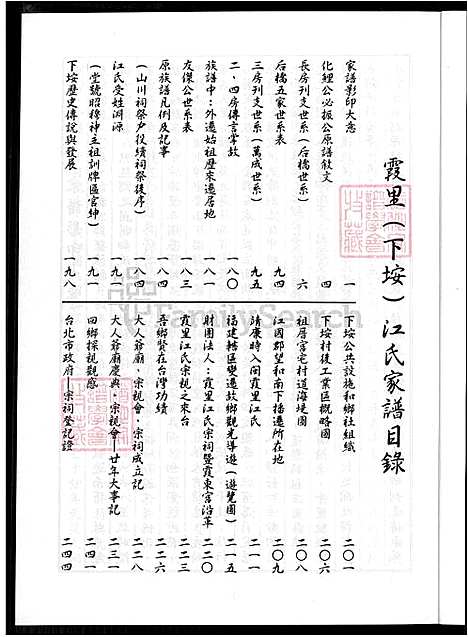 霞里(下垵)江氏家譜目錄
家譜影印大意 一
化鯉公必振公原譜敘文 四
長房列支世系(后橋世系) 六
后橋五家世系表 九四
三房列支世系(萬成世系) 九五
二、四房傳言掌故 一八〇
族譜中:外遷始祖歷來遷居地 一八一
友傑公世系表 一八三
原族譜凡例及記事 一八四
(山川祠祭戶役續祠祭後序)
江氏受姓淵源 一九一
(堂號昭穆神主祖訓牌區宮紳) 一九一
下垵歷史傳說與發展 一九八
下垵公共設施和鄉社組織 二〇一
下垵村後工業區概略圖 二〇六
祖厝宮宅村道海境圖 二〇八
江國郡望和南下播遷所在地 二〇九
靖康時入閩霞里江氏 二一一
福建轄區變遷故鄉觀光導遊(遊覽圖) 二一五
財團法人:霞里江氏宗祠暨霞東宮沿革 二二〇
霞里江氏宗祠之來台 二二三
吾鄉賢在台灣功績 二二六
大人爺廟、宗親會、宗祠成立記 二二八
大人爺廟慶典、宗親會—廿年大事記 二三一
回鄉探親觀感 二四一
台北市政府、宗祠登記證 二四四
FamilySearch